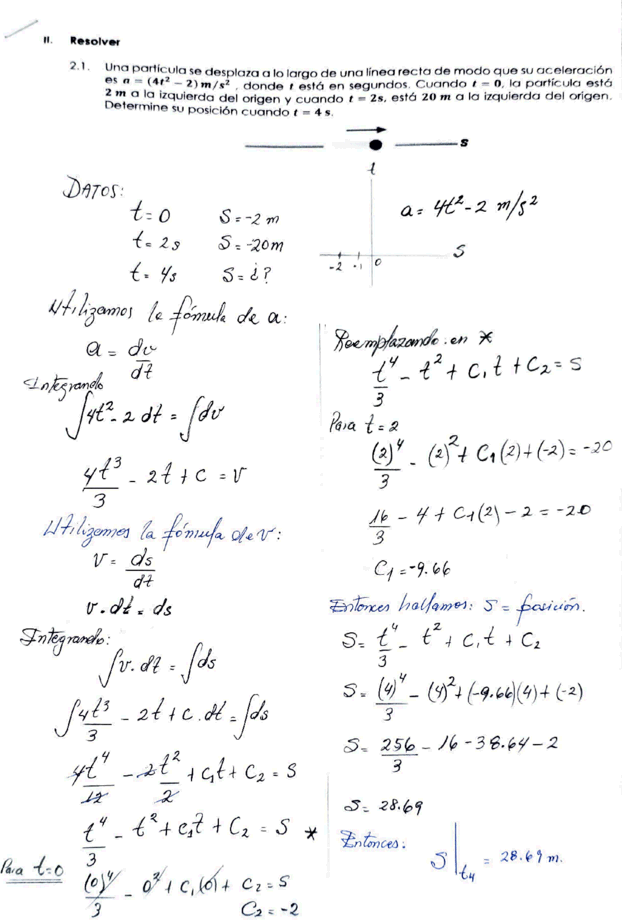 II. Resolver
2.1. Una partícula se desplaza a lo largo de una línea recta de modo que su aceleración
es a = (4t² − 2) m/s² , donde t está en segundos. Cuando t = 0, la partícula está
2 m a la izquierda del origen y cuando t = 2s, está 20 m a la izquierda del origen.
Determine su posición cuando t = 4 s.
s
DATOS:
t=0 S=-2 m
t=2s S=-20m
t=4s S=¿?
t
S
-2 -1 0
a= 4t²-2 m/s²
Utilizamos la fórmula de a:
a = dv/dt
Integrando
∫4t²-2 dt = ∫dv
4t³/3 - 2t + c = v
Utilizamos la fórmula de v:
v = ds/dt
v.dt = ds
Integrando:
∫v.dt = ∫ds
∫4t³/3 - 2t + c.dt = ∫ds
4t⁴/12 - 2t²/2 + c₁t + C₂ = S
t⁴/3 - t² + c₁t + C₂ = S *
Para t=0
(0)⁴/3 - 0² + c₁(0) + C₂ = S
C₂ = -2
Reemplazando en *
t⁴/3 - t² + C₁t + C₂ = S
Para t=2
(2)⁴/3 - (2)² + C₁(2) + (-2) = -20
16/3 - 4 + C₁(2) - 2 = -20
C₁ = -9.66
Entonces hallamos: S = posición.
S = t⁴/3 - t² + C₁t + C₂
S = (4)⁴/3 - (4)² + (-9.66)(4) + (-2)
S = 256/3 - 16 - 38.64 - 2
S = 28.69
Entonces:
S|t₄ = 28.69 m.